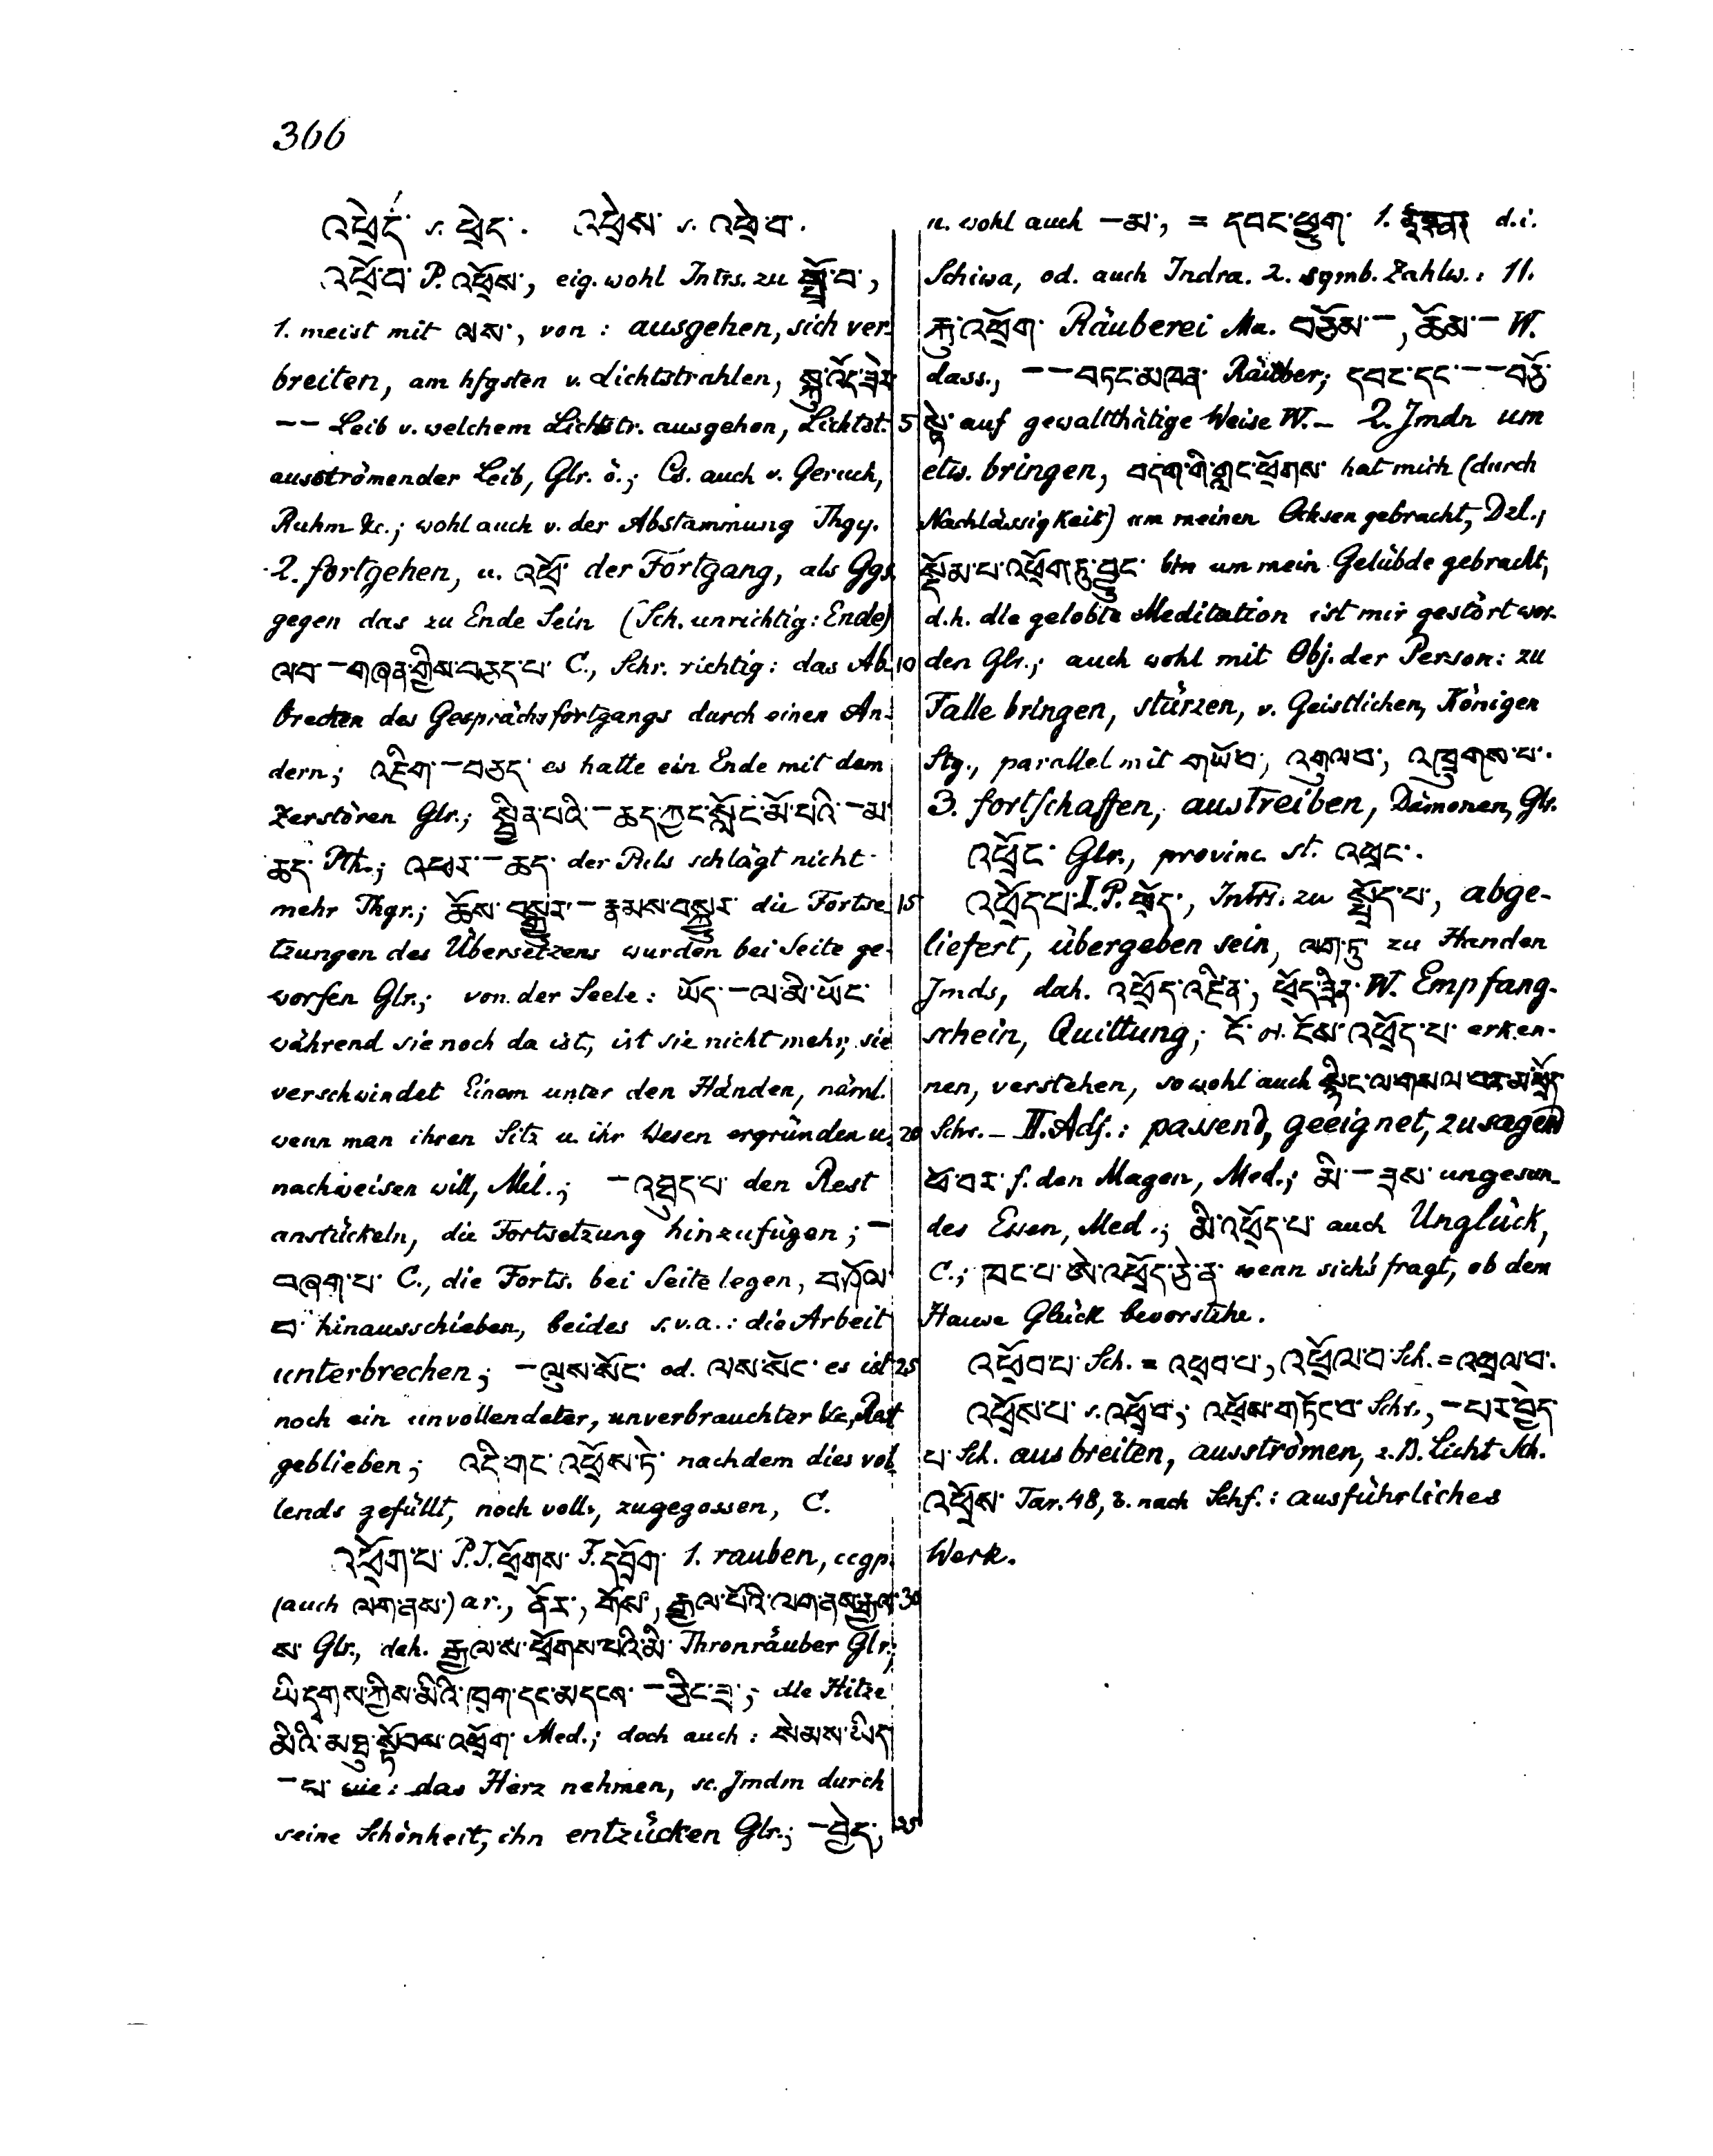 366
འཕྲེད་ s. ཕྲེད་. འཕྲེས་ s. འཕྲེ་བ་.
འཕྲོ་བ་ P. འཕྲོས་, eig. wohl Intrs. zu སྤྲོ་བ་,
1. meist mit ལས་, von: ausgehen, sich ver-
breiten, am hfgsten v. Lichtstrahlen, སྐུ་འོད་ཟེར་
–– Leib v. welchem Lichtstr. ausgehen, Lichtst.
ausströmender Leib, Glr. ö.; Cs. auch v. Geruch,
Ruhm &c.; wohl auch v. der Abstammung Thgy.
2. fortgehen, u. འཕྲོ་ der Fortgang, als Ggs.
gegen das zu Ende Sein (Sch. unrichtig: Ende)
ལབ་–གཞན་གྱིས་བཅད་པ་ C., Schr. richtig: das Ab-
brechen des Gesprächsfortgangs durch einen An-
dern; འཇིག་–བཅད་ es hatte ein Ende mit dem
Zerstören Glr.; སྦྱིན་པའི་–ཆད་ཀྱང་སློང་མོ་པའི་–མ་
ཆད་ Pth.; འཕར་–ཆད་ der Puls schlägt nicht
mehr Thgr.; ཆོས་བསྒྱུར་–རྣམས་བསྐྱུར་ die Fortse-
tzungen des Übersetzens wurden bei Seite ge-
worfen Glr.; von der Seele: ཡོད་–ལ་མི་ཡོང་
während sie noch da ist, ist sie nicht mehr, sie
verschwindet Einem unter den Händen, näml.
wenn man ihren Sitz u. ihr Wesen ergründen u.
nachweisen will, Mil.; –འཐུད་པ་ den Rest
anstückeln, die Fortsetzung hinzufügen; –
བཞག་པ་ C., die Forts. bei Seite legen, བཤོལ་
བ་ hinausschieben, beides s.v.a.: die Arbeit
unterbrechen; –ལུས་སོང་ od. ལས་སོང་ es ist
noch ein unvollendeter, unverbrauchter &c. Rest
geblieben; འདི་གང་འཕྲོས་ཏེ་ nachdem dies vol-
lends gefüllt, noch voll, zugegossen, C.
འཕྲོག་པ་ P.I. ཕྲོགས་ F. དབྲོག་ 1. rauben, ccgp.
(auch ལག་ནས་) ar., ནོར་, གོས་, རྒྱལ་པོའི་ལག་ནས་རྒྱལ་
ས་ Glr., dah. རྒྱལ་ས་ཕྲོགས་པའི་མི་ Thronräuber Glr.;
ཡི་དྭགས་ཀྱིས་མིའི་ཁྲག་དང་མདངས་–ཅིང་ཟ་; die Hitze
མིའི་མཐུ་སྟོབས་འཕྲོག་ Med.; doch auch: སེམས་ཡིད་
–པ་ wie: das Herz nehmen, sc. Jmdm durch
seine Schönheit, ihn entzücken Glr.; –བྱེད་,
u. wohl auch –མ་, = དབང་ཕྱུག་ 1. d.i.
Schiwa, od. auch Indra. 2. symb. Zahlw.: 11.
རྐུ་འཕྲོག་ Räuberei Ma. བཅོམ་–, ཆོམ་– W.
dass., ––བཏང་མཁན་ Räuber; དབང་དང་––བཅོ་
སྟེ་ auf gewaltthätige Weise W. – 2. Jmdn um
etw. bringen, བདག་གི་གླང་ཕྲོགས་ hat mich (durch
Nachlässigkeit) um meinen Ochsen gebracht, Dzl.;
སྡོམ་པ་འཕྲོག་ཏུ་བྱུང་ bin um mein Gelübde gebracht,
d.h. die gelobte Meditation ist mir gestört wor-
den Glr.; auch wohl mit Obj. der Person: zu
Falle bringen, stürzen, v. Geistlichen, Königen
Stg., parallel mit གཡོབ་, འགུལབ་, འཁྲུགས་པ་.
3. fortschaffen, austreiben, Dämonen, Glr.
འཕྲོང་ Glr., provinc. st. འཕྲང་.
འཕྲོད་པ་ I. P. ཕྲོད་, Intrs. zu སྤྲོད་པ་, abge-
liefert, übergeben sein, ལག་ཏུ་ zu Handen
Jmds, dah. འཕྲོད་འཛིན་, ཕྲོད་འཛིན་ W. Empfang-
schein, Quittung; ངོ་ od. ངོས་འཕྲོད་པ་ erken-
nen, verstehen, sowohl auch སྙིང་ལ་གསལ་བར་མ་ཕྲོད་
Schr. – II. Adj.: passend, geeignet, zusagend
ཕོ་བར་ f. den Magen, Med.; མི་–ཟས་ ungesun-
des Essen, Med.; མི་འཕྲོད་པ་ auch Unglück,
C.; ཁང་པ་ཨེ་འཕྲོད་ཅེ་ན་ wenn sichs fragt, ob dem
Hause Glück bevorstehe.
འཕྲོབ་པ་ Sch. = འཕྲབ་པ་, འཕྲོལ་བ་ Sch. = འཕྲལ་བ་.
འཕྲོས་པ་ s. འཕྲོ་བ་; འཕྲོས་གཏོང་བ་ Schr., –པར་བྱེད་
པ་ Sch. ausbreiten, ausströmen, z.B. Licht Sch.
འཕྲོས་ Tar. 48, 8. nach Schf.: ausführliches
Werk.
5
10
15
20
25
30
35